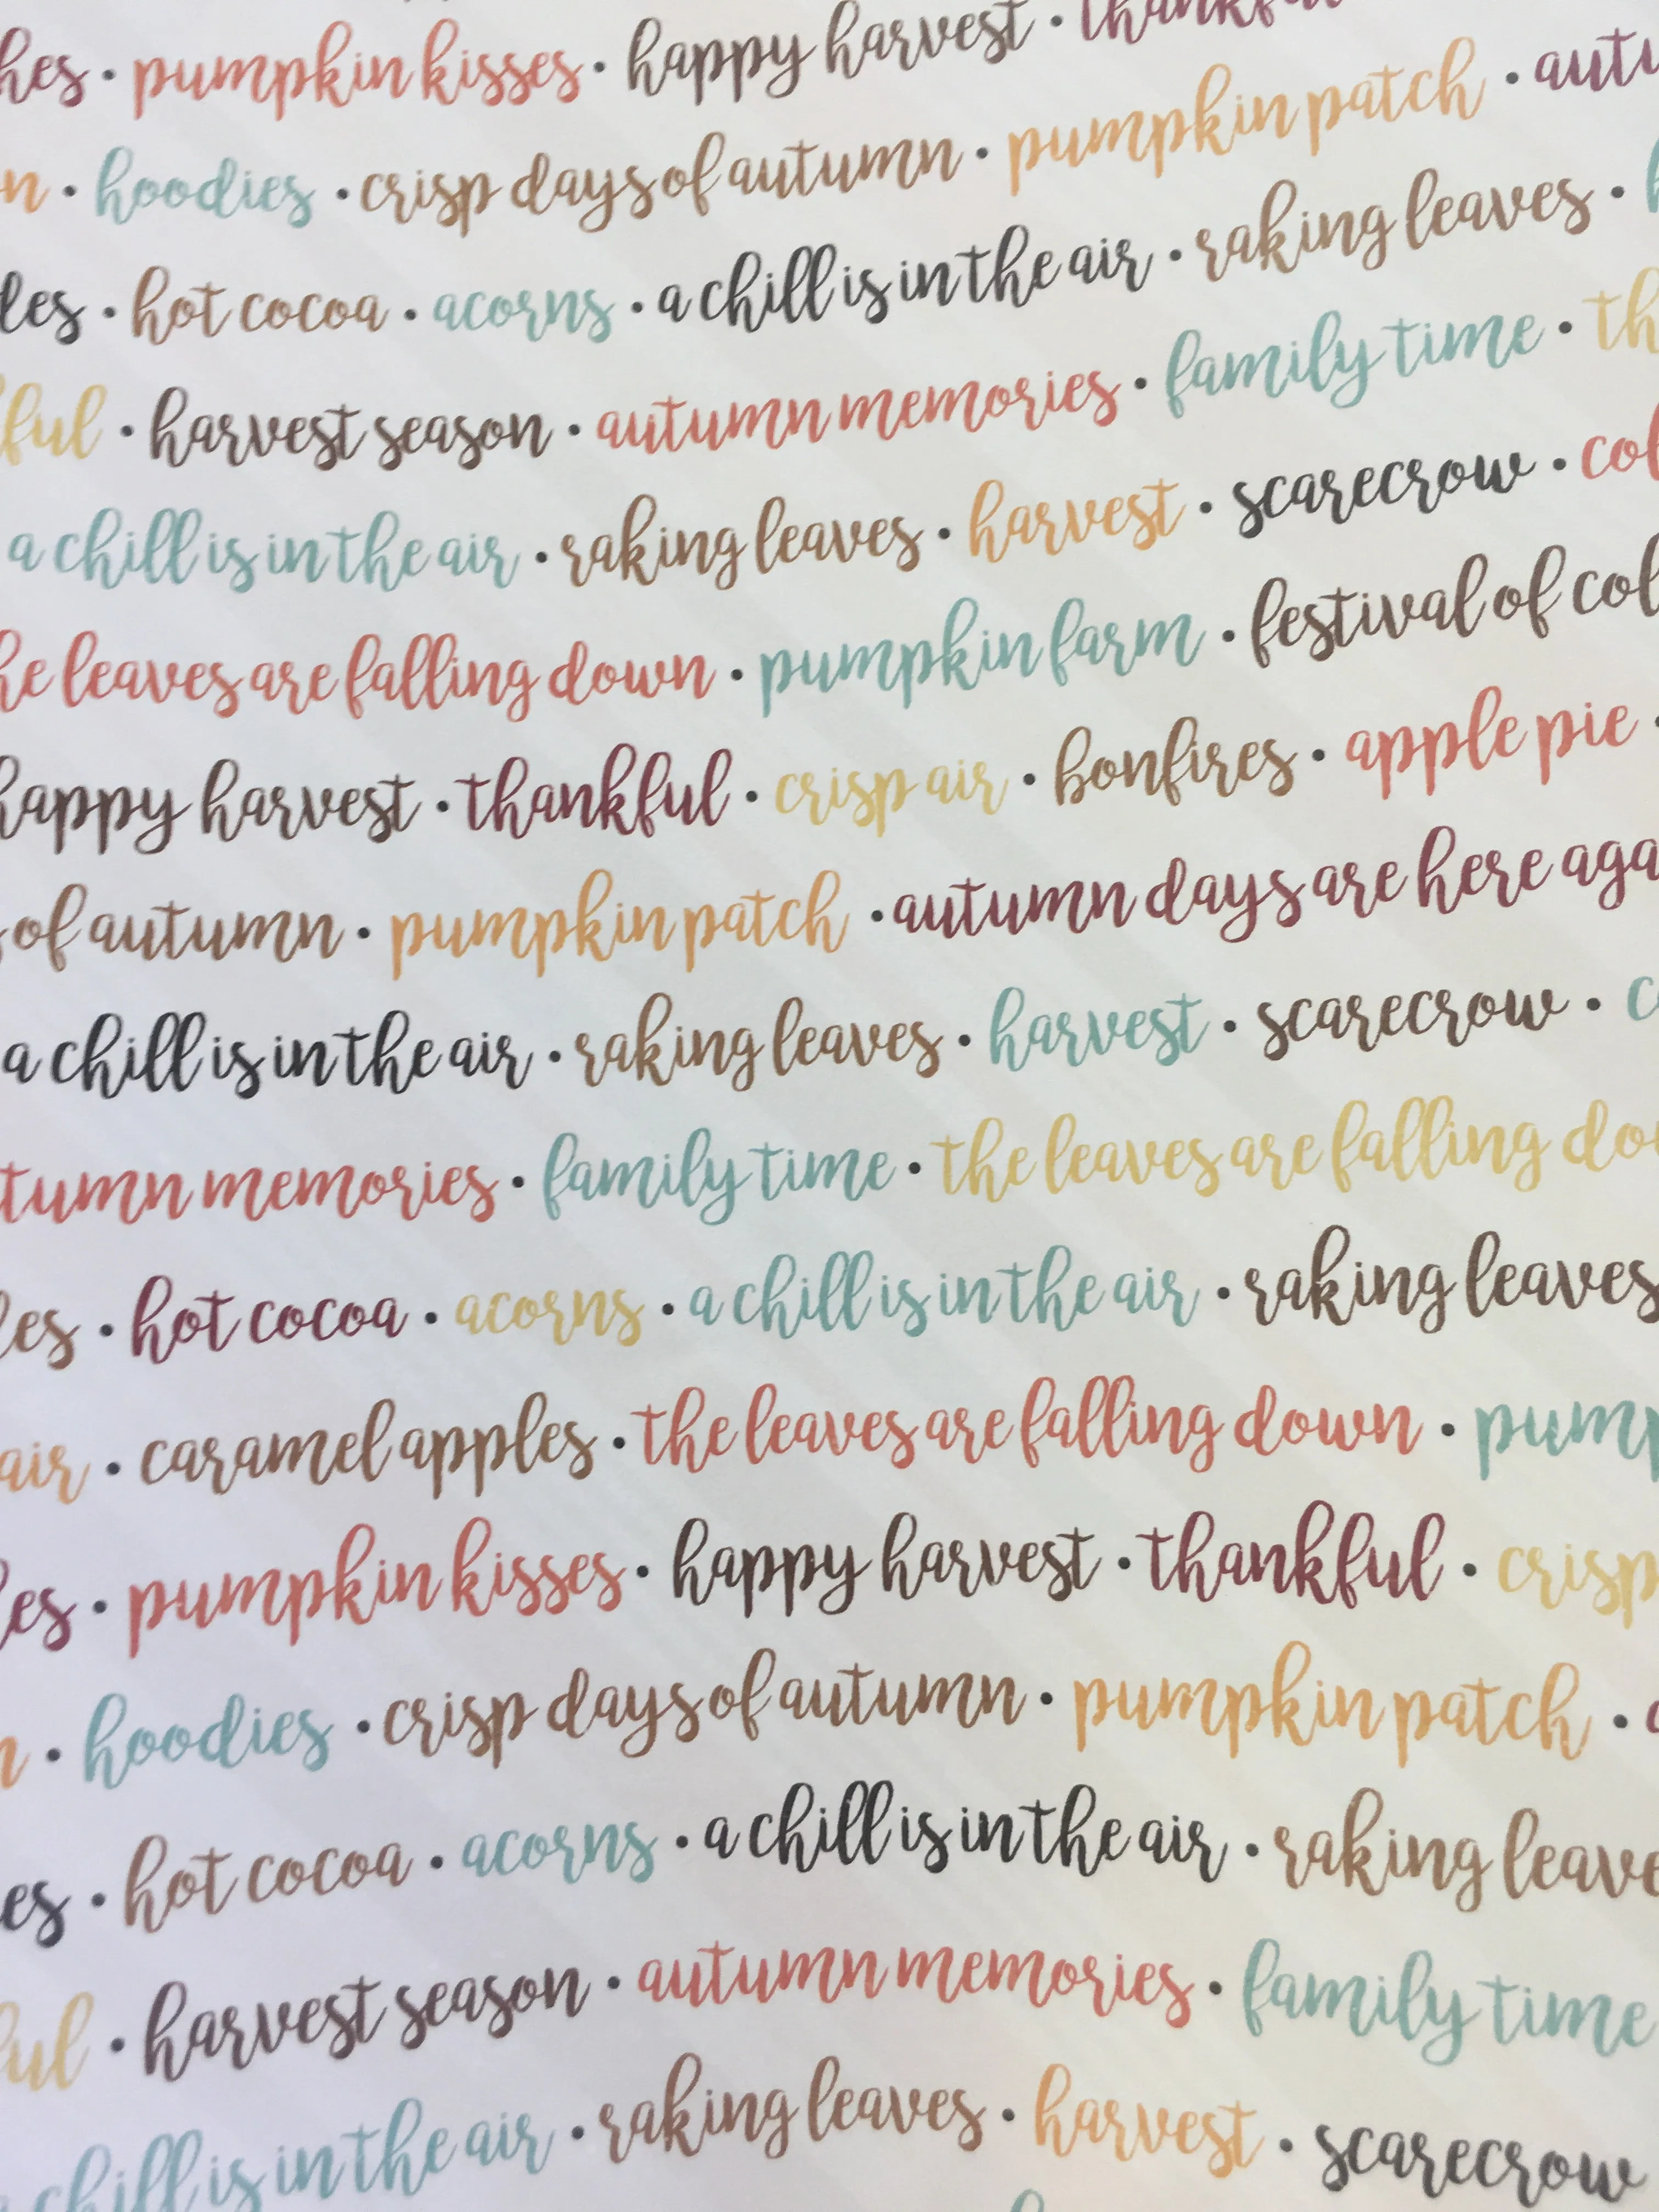 hes · pumpkin kisses · happy harvest · thankful
n · hoodies · crisp days of autumn · pumpkin patch · autu
les · hot cocoa · acorns · a chill is in the air · raking leaves ·
ful · harvest season · autumn memories · family time · th
a chill is in the air · raking leaves · harvest · scarecrow · col
he leaves are falling down · pumpkin farm · festival of col
happy harvest · thankful · crisp air · bonfires · apple pie ·
of autumn · pumpkin patch · autumn days are here aga
a chill is in the air · raking leaves · harvest · scarecrow · c
tumn memories · family time · the leaves are falling dow
les · hot cocoa · acorns · a chill is in the air · raking leaves
air · caramel apples · the leaves are falling down · pump
les · pumpkin kisses · happy harvest · thankful · crisp
n · hoodies · crisp days of autumn · pumpkin patch ·
es · hot cocoa · acorns · a chill is in the air · raking leave
ful · harvest season · autumn memories · family time
a chill is in the air · raking leaves · harvest · scarecrow